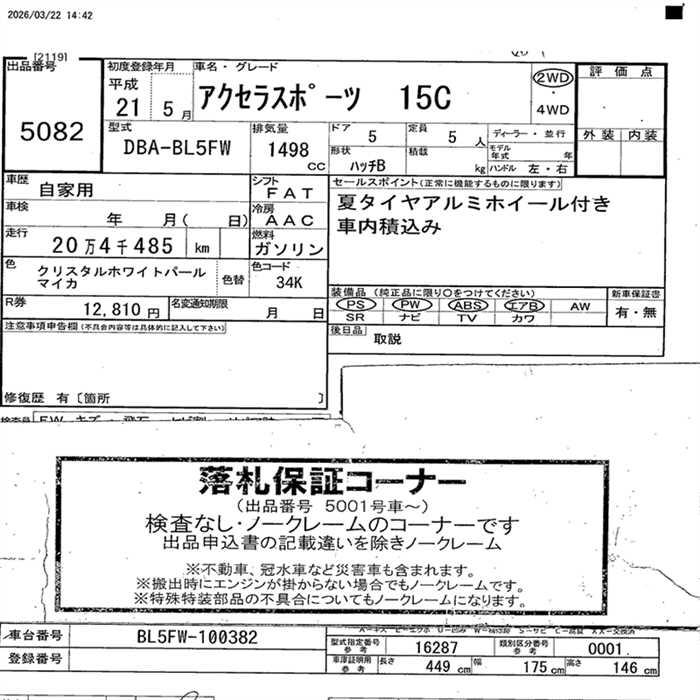 2026/03/22 14:42
[2119]
出品番号
5082
初度登録年月
平成
21 5月
車名・グレード
アクセラスポーツ 15C
2WD
4WD
評価点
外装 内装
型式
DBA-BL5FW
排気量
1498
CC
ドア
5
定員
5人
形状
ハッチB
積載
kg
ディーラー・並行
モデル年式 年
ハンドル 左・右
車歴
自家用
車検
年 月( 日)
走行
20万4千485 km
色
クリスタルホワイトパールマイカ
色替
シフト
FAT
冷房
AAC
燃料
ガソリン
色コード
34K
R券
12,810円
名変通知期限
月 日
セールスポイント(正常に機能するものに限ります)
夏タイヤアルミホイール付き
車内積込み
装備品 (純正品に限り○をつけてください)
PS PW ABS エアB AW
SR ナビ TV カワ
新車保証書
有・無
後日品
取説
注意事項申告欄(不具合内容等は具体的に記入して下さい)
修復歴 有〔箇所 〕
落札保証コーナー
(出品番号 5001号車～)
検査なし・ノークレームのコーナーです
出品申込書の記載違いを除きノークレーム
※不動車、冠水車など災害車も含まれます。
※搬出時にエンジンが掛からない場合でもノークレームです。
※特殊特装部品の不具合についてもノークレームになります。
車台番号
BL5FW-100382
登録番号
型式指定番号
参考
16287
類別区分番号
参考
0001.
車庫証明用
参考
長さ
449 cm
幅
175 cm
高さ
146 cm